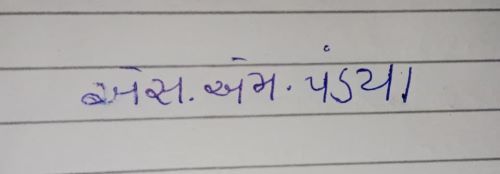 એસ. એમ. પંડયા